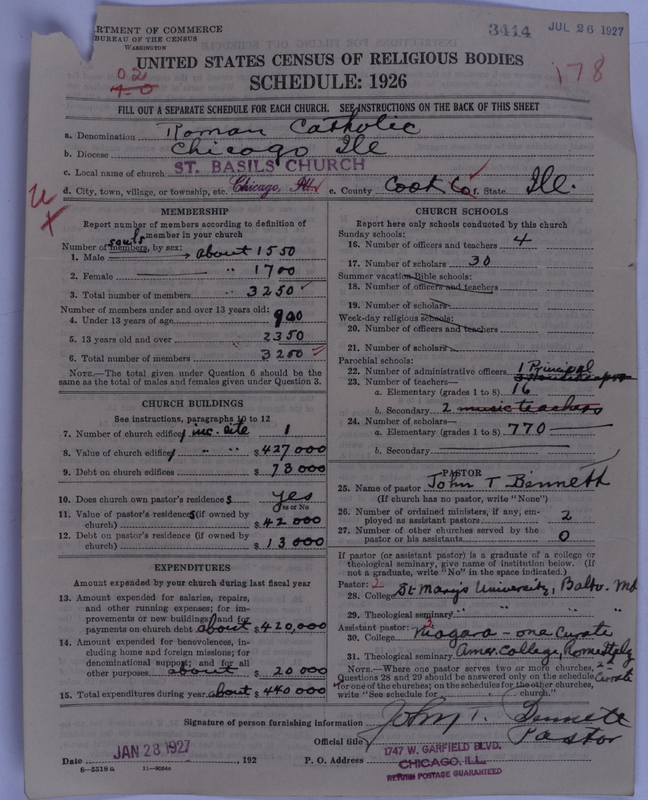 DEPARTMENT OF COMMERCE
BUREAU OF THE CENSUS
WASHINGTON
3414 JUL 26 1927
UNITED STATES CENSUS OF RELIGIOUS BODIES
SCHEDULE: 1926
02
178
FILL OUT A SEPARATE SCHEDULE FOR EACH CHURCH. SEE INSTRUCTIONS ON THE BACK OF THIS SHEET
a. Denomination Roman Catholic
b. Diocese Chicago Ill
c. Local name of church ST. BASILS CHURCH
d. City, town, village, or township, etc. Chicago, Ill. e. County Cook Co. f. State Ill.
MEMBERSHIP
Report number of members according to definition of member in your church
souls
Number of members, by sex:
1. Male about 1550
2. Female " 1700
3. Total number of members 3250
Number of members under and over 13 years old:
4. Under 13 years of age 900
5. 13 years old and over 2350
6. Total number of members 3250
NOTE.—The total given under Question 6 should be the
same as the total of males and females given under Question 3.
CHURCH BUILDINGS
See instructions, paragraphs 10 to 12
7. Number of church edifices inc. site 1
8. Value of church edifices " " $ 427000
9. Debt on church edifices $ 73000
10. Does church own pastor's residence yes
Yes or No
11. Value of pastor's residence (if owned by
church) $ 42000
12. Debt on pastor's residence (if owned by
church) $ 13000
EXPENDITURES
Amount expended by your church during last fiscal year
13. Amount expended for salaries, repairs,
and other running expenses; for im-
provements or new buildings; and for
payments on church debt about $ 420,000
14. Amount expended for benevolences, in-
cluding home and foreign missions; for
denominational support; and for all
other purposes about $ 20000
15. Total expenditures during year about $ 440000
CHURCH SCHOOLS
Report here only schools conducted by this church
Sunday schools:
16. Number of officers and teachers 4
17. Number of scholars 30
Summer vacation Bible schools:
18. Number of officers and teachers
19. Number of scholars
Week-day religious schools:
20. Number of officers and teachers
21. Number of scholars
Parochial schools:
22. Number of administrative officers 1 Principal
23. Number of teachers—
a. Elementary (grades 1 to 8) 16
b. Secondary 2 music teachers
24. Number of scholars—
a. Elementary (grades 1 to 8) 770
b. Secondary
PASTOR
25. Name of pastor John T Bennett
(If church has no pastor, write "None")
26. Number of ordained ministers, if any, em-
ployed as assistant pastors 2
27. Number of other churches served by the
pastor or his assistants 0
If pastor (or assistant pastor) is a graduate of a college or
theological seminary, give name of institution below. (If
not a graduate, write "No" in the space indicated.)
Pastor: 2
28. College St Mary's University, Balto. Md
29. Theological seminary " " " "
Assistant pastor: 2
30. College Niagara - one Curate
31. Theological seminary Amer. College, Rome Italy
2nd Curate
NOTE.—Where one pastor serves two or more churches,
Questions 28 and 29 should be answered only on the schedule
for one of the churches; on the schedules for the other churches,
write "See schedule for church."
Signature of person furnishing information John T. Bennett
Official title Pastor
Date JAN 28 1927 , 192 P. O. Address 1747 W. GARFIELD BLVD.
CHICAGO, ILL.
RETURN POSTAGE GUARANTEED
8-5518a 11-9054a